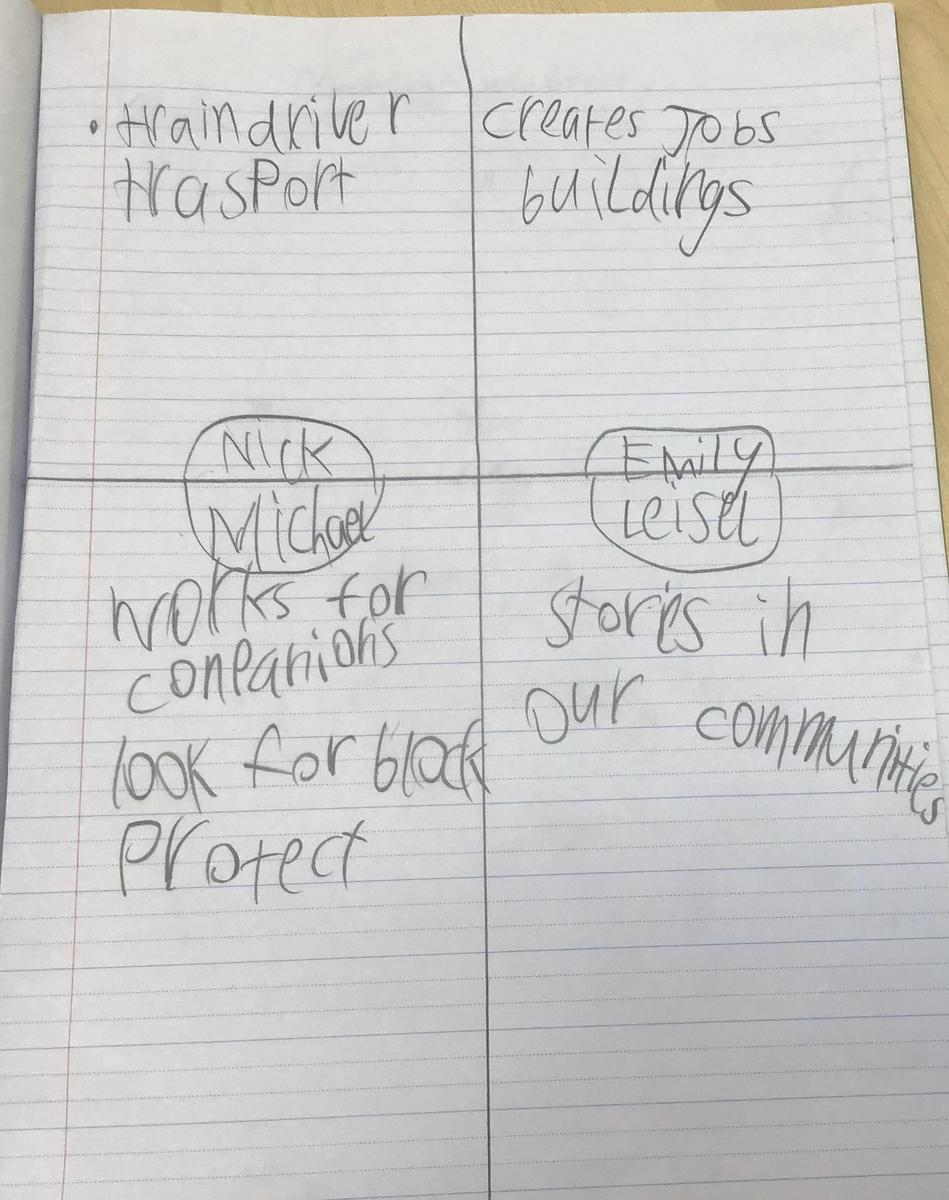 • traindriver
trasport
creates Jobs
buildings
Nick
Michael
Emily
Leisel
works for
conpanions
look for block
Protect
stores in
our communities